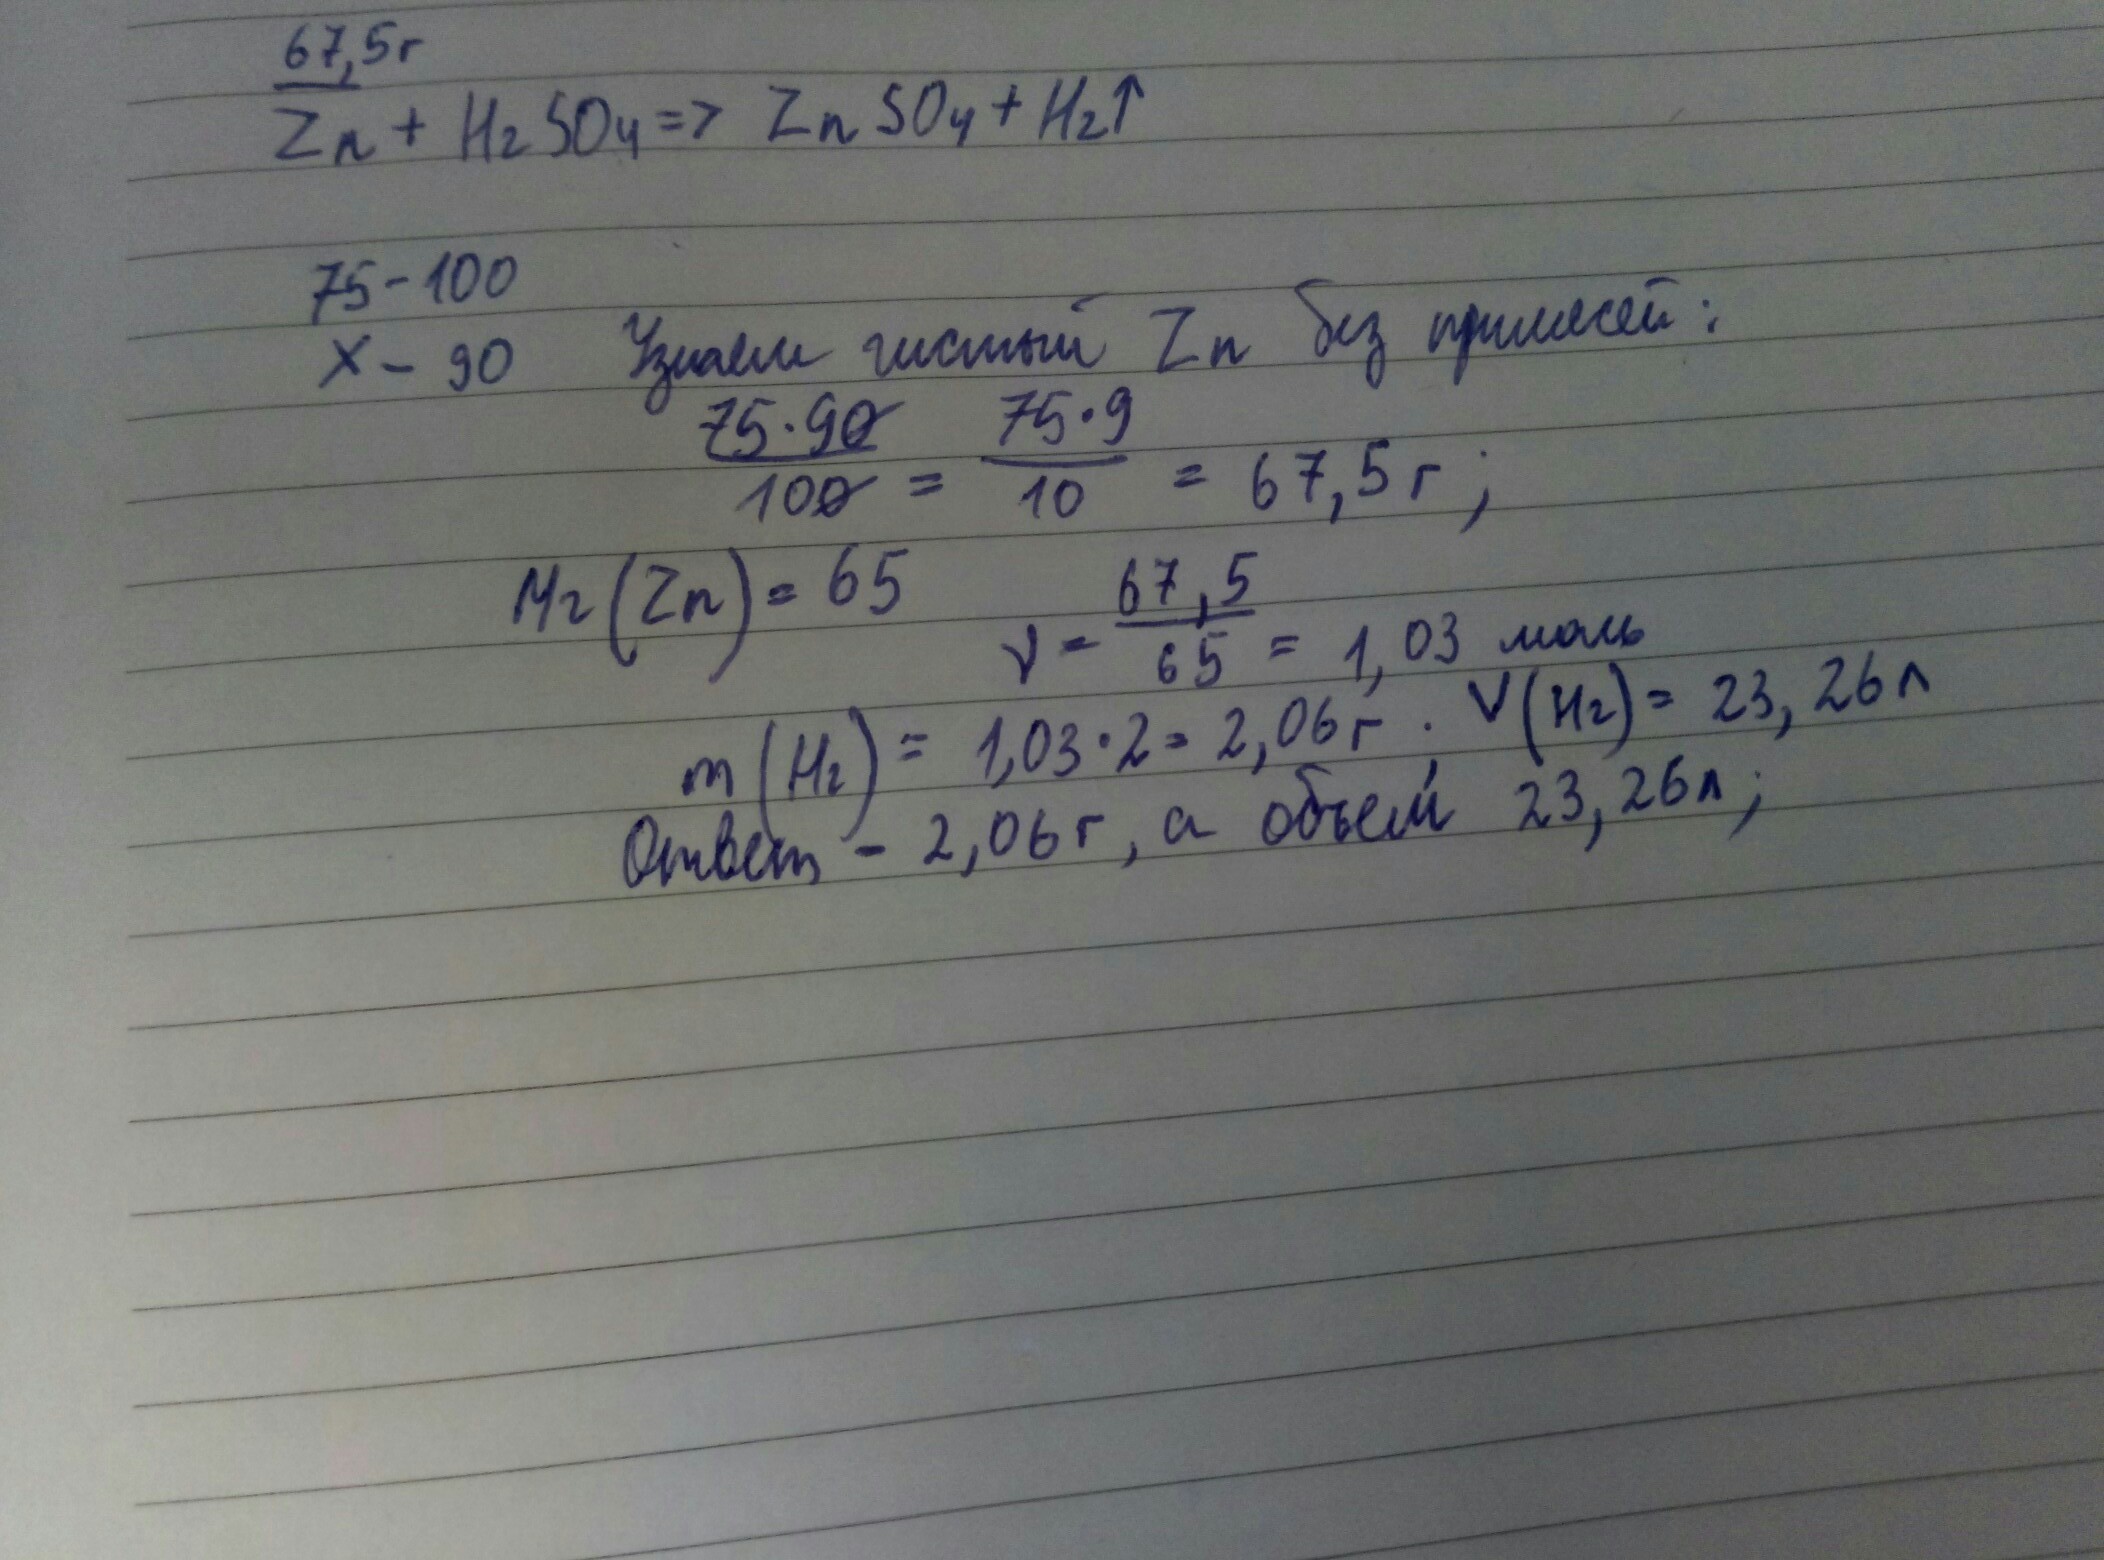 67,5г
Zn + H₂SO₄ => ZnSO₄ + H₂↑
75 - 100
X - 90 Узнаем чистый Zn без примесей:
75·90/100 = 75·9/10 = 67,5г;
Mr(Zn) = 65 ν = 67,5/65 = 1,03 моль
m(H₂) = 1,03·2 = 2,06г; V(H₂) = 23,26л
Ответ - 2,06г, а объем 23,26л;